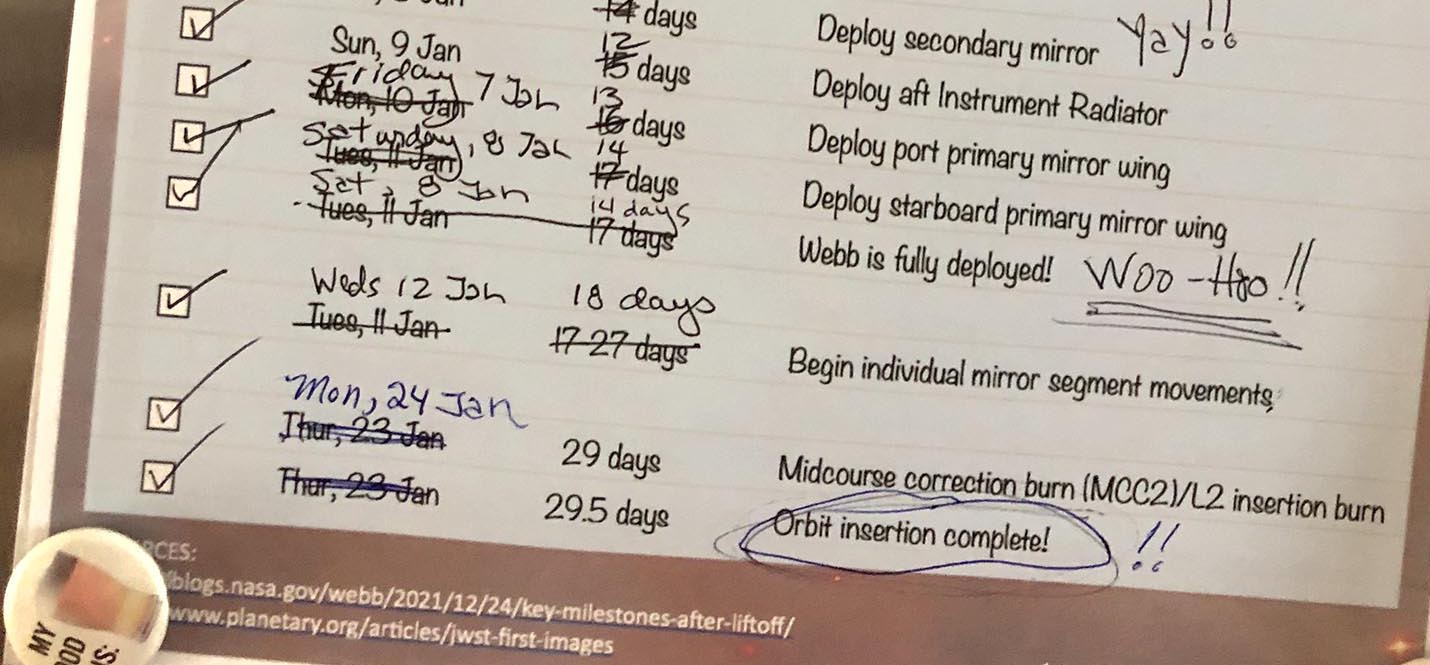 14 days Deploy secondary mirror Yay!!
Sun, 9 Jan 12
15 days Deploy aft Instrument Radiator
Friday 7 Jan 13
Mon, 10 Jan 16 days Deploy port primary mirror wing
Saturday, 8 Jan 14
Tues, 11 Jan 17 days Deploy starboard primary mirror wing
Sat, 8 Jan 14 days
Tues, 11 Jan 17 days Webb is fully deployed! Woo-Hoo!!
Weds 12 Jan 18 days
Tues, 11 Jan 17 27 days Begin individual mirror segment movements,
Mon, 24 Jan
Thur, 23 Jan 29 days Midcourse correction burn (MCC2)/L2 insertion burn
Thur, 23 Jan 29.5 days Orbit insertion complete! !!
RCES:
/blogs.nasa.gov/webb/2021/12/24/key-milestones-after-liftoff/
www.planetary.org/articles/jwst-first-images
MY
OOD
NS: